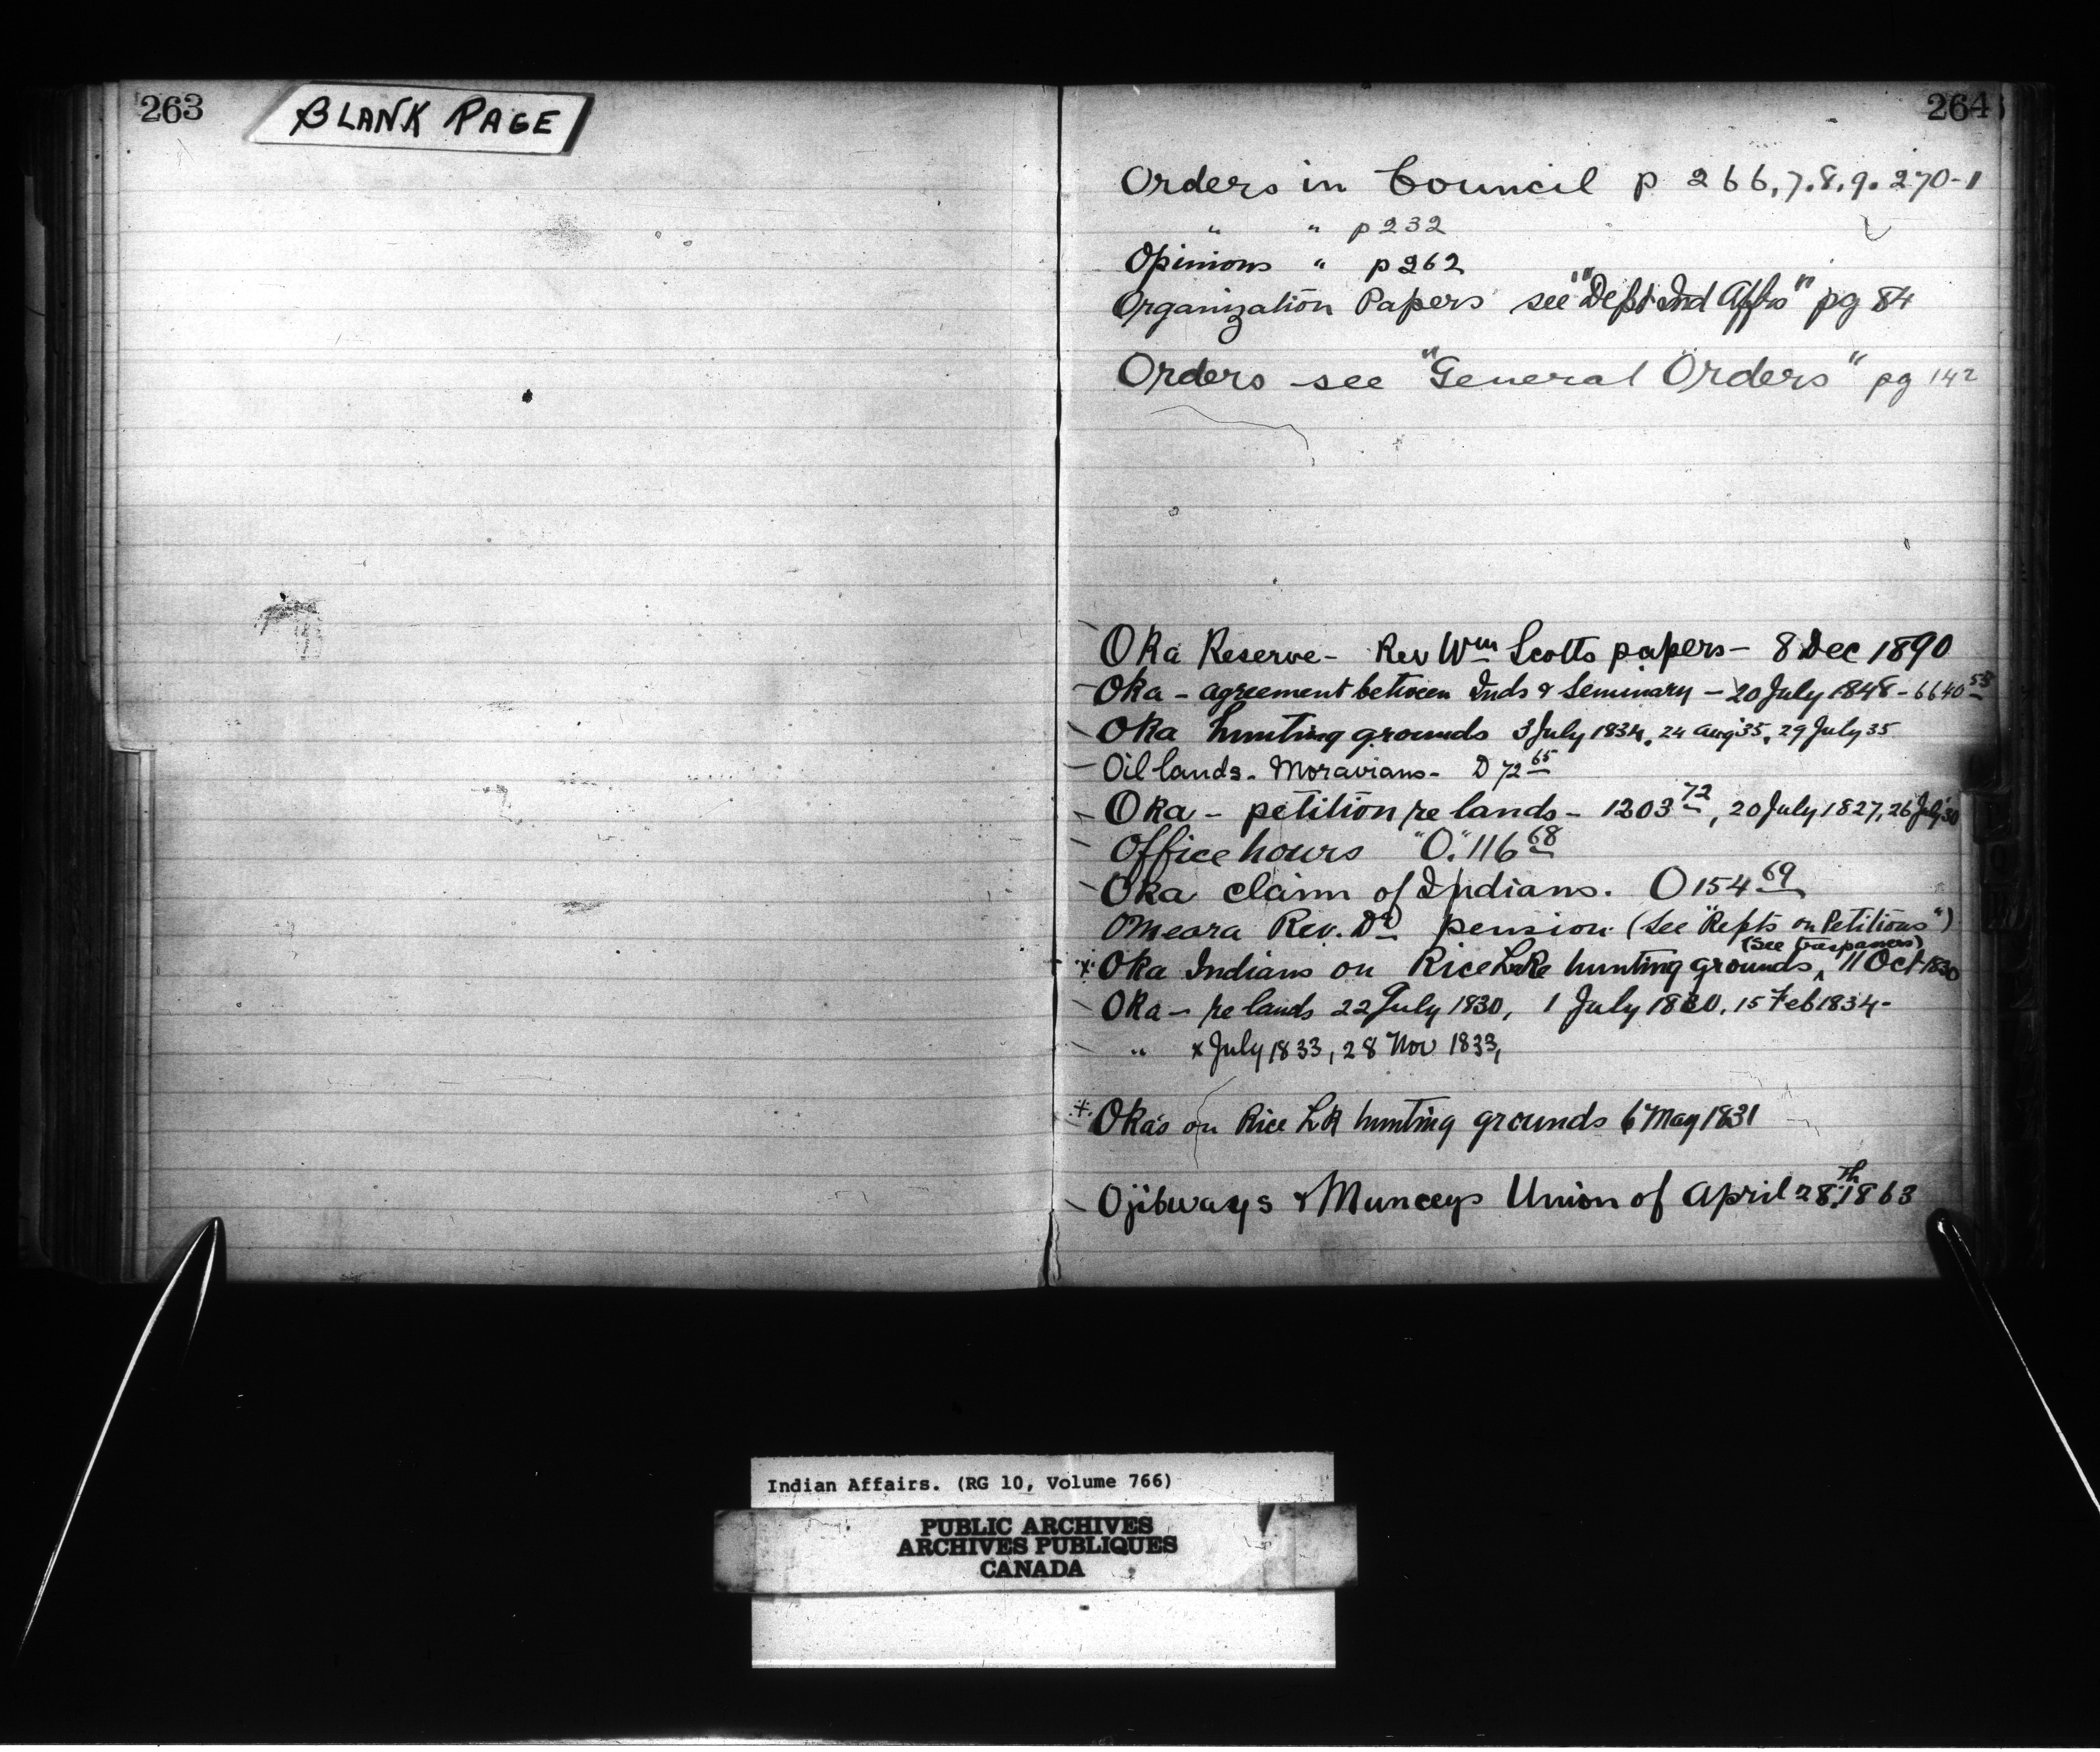 263
BLANK PAGE
264
Orders in Council p 266,7.8.9.270-1
" " p232
Opinions " p262
Organization Papers see "Dept Ind Affrs" pg 84
Orders see "General Orders" pg 142
Oka Reserve - Rev Wm Scotts papers - 8 Dec 1890
Oka - agreement between Inds & Seminary - 20 July 1848 - 6640 53
Oka hunting grounds 3 July 1834, 24 Aug '35, 29 July 35
Oil lands - Moravians - D 72 65
Oka - petition re lands - 1203 72, 20 July 1827, 26 July '30
Office hours "O." 116 68
Oka claim of Indians. O 154 69
OMeara Rev. Dr pension (See "Repts on Petitions")
(See trespassers)
Oka Indians on Rice Lake hunting grounds, 11 Oct 1830
Oka - re lands 22 July 1830, 1 July 1830, 15 Feb 1834 -
" x July 1833, 28 Nov 1833,
Oka's on Rice LK hunting grounds 6 May 1831
Ojibways & Munceys Union of April 28th 1863
Indian Affairs. (RG 10, Volume 766)
PUBLIC ARCHIVES
ARCHIVES PUBLIQUES
CANADA